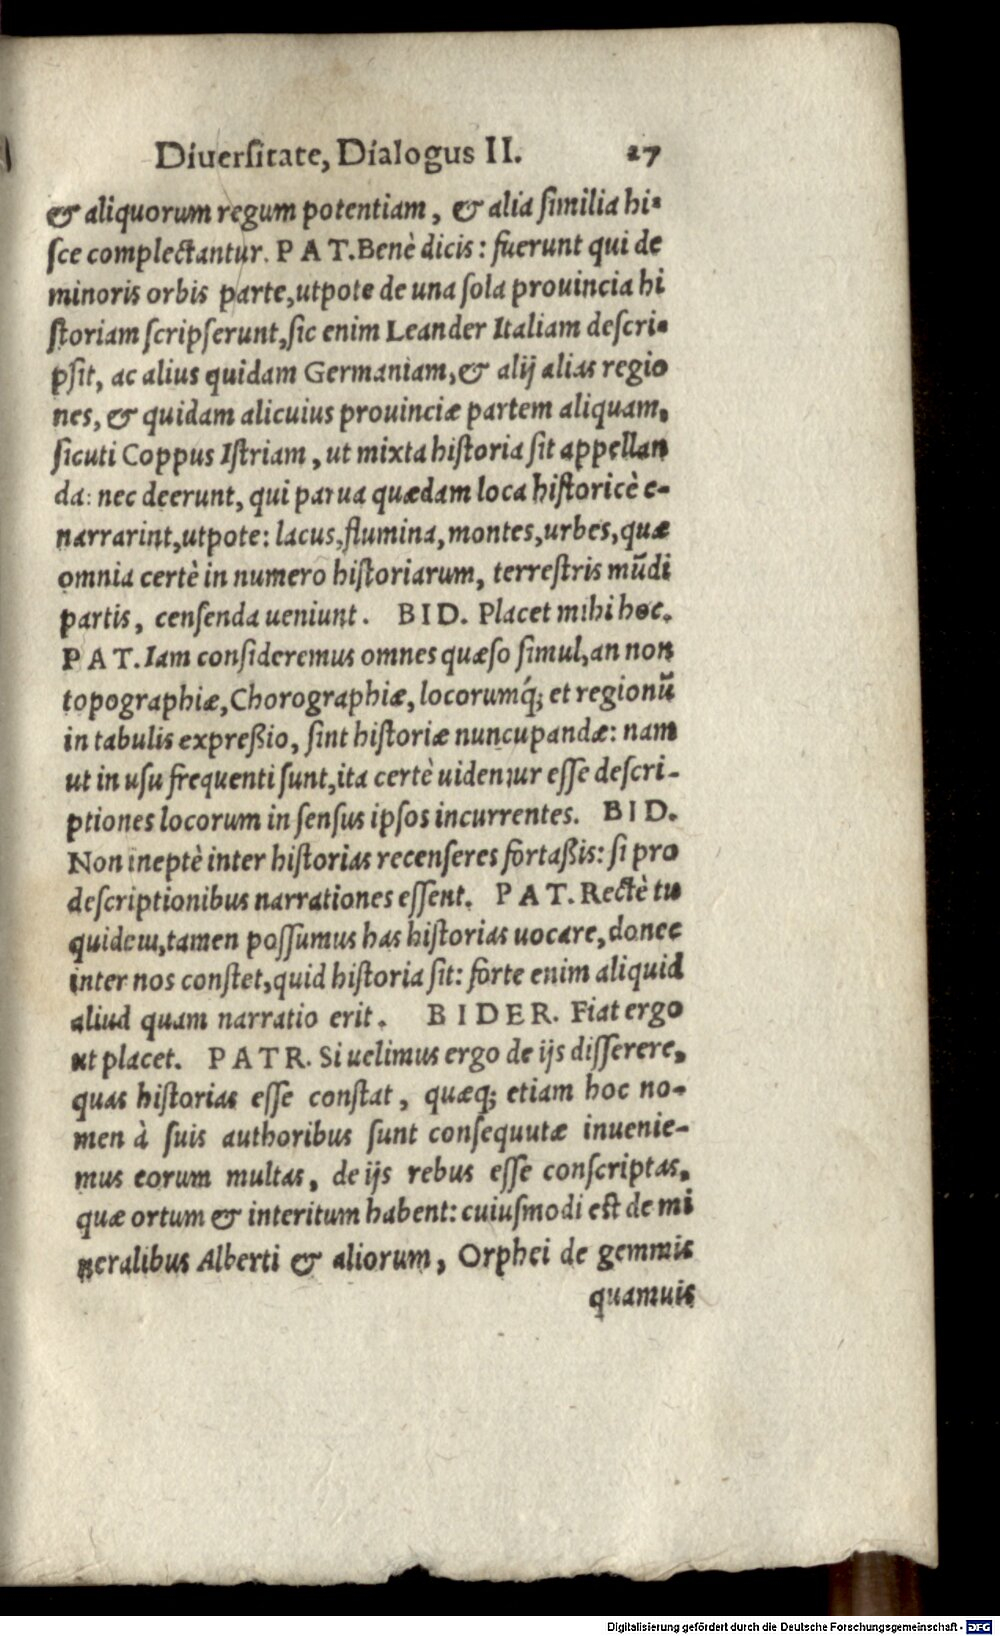 Diuerſitate, Dialogus II. 27
& aliquorum regum potentiam, & alia ſimilia hi-
ſce complectantur. PAT. Benè dicis: fuerunt qui de
minoris orbis parte, utpote de una ſola prouincia hi
ſtoriam ſcripſerunt, ſic enim Leander Italiam deſcri-
pſit, ac alius quidam Germaniam, & alij alias regio
nes, & quidam alicuius prouinciæ partem aliquam,
ſicuti Coppus Iſtriam, ut mixta hiſtoria ſit appellan
da: nec deerunt, qui parua quædam loca hiſtoricè e-
narrarint, utpote: lacus, flumina, montes, urbes, quæ
omnia certè in numero hiſtoriarum, terreſtris mũdi
partis, cenſenda ueniunt. BID. Placet mihi hoc.
PAT. Iam conſideremus omnes quæſo ſimul, an non
topographiæ, Chorographiæ, locorumq́; et regionũ
in tabulis expreßio, ſint hiſtoriæ nuncupandæ: nam
ut in uſu frequenti ſunt, ita certè uidentur eſſe deſcri-
ptiones locorum in ſenſus ipſos incurrentes. BID.
Non ineptè inter hiſtorias recenſeres fortaßis: ſi pro
deſcriptionibus narrationes eſſent. PAT. Rectè tu
quidem, tamen poſſumus has hiſtorias uocare, donec
inter nos conſtet, quid hiſtoria ſit: forte enim aliquid
aliud quam narratio erit. BIDER. Fiat ergo
ut placet. PATR. Si uelimus ergo de ijs diſſerere,
quas hiſtorias eſſe conſtat, quæq; etiam hoc no-
men à ſuis authoribus ſunt conſequutæ inuenie-
mus eorum multas, de ijs rebus eſſe conſcriptas,
quæ ortum & interitum habent: cuiuſmodi eſt de mi
neralibus Alberti & aliorum, Orphei de gemmis
quamuis
Digitalisierung gefördert durch die Deutsche Forschungsgemeinschaft - DFG